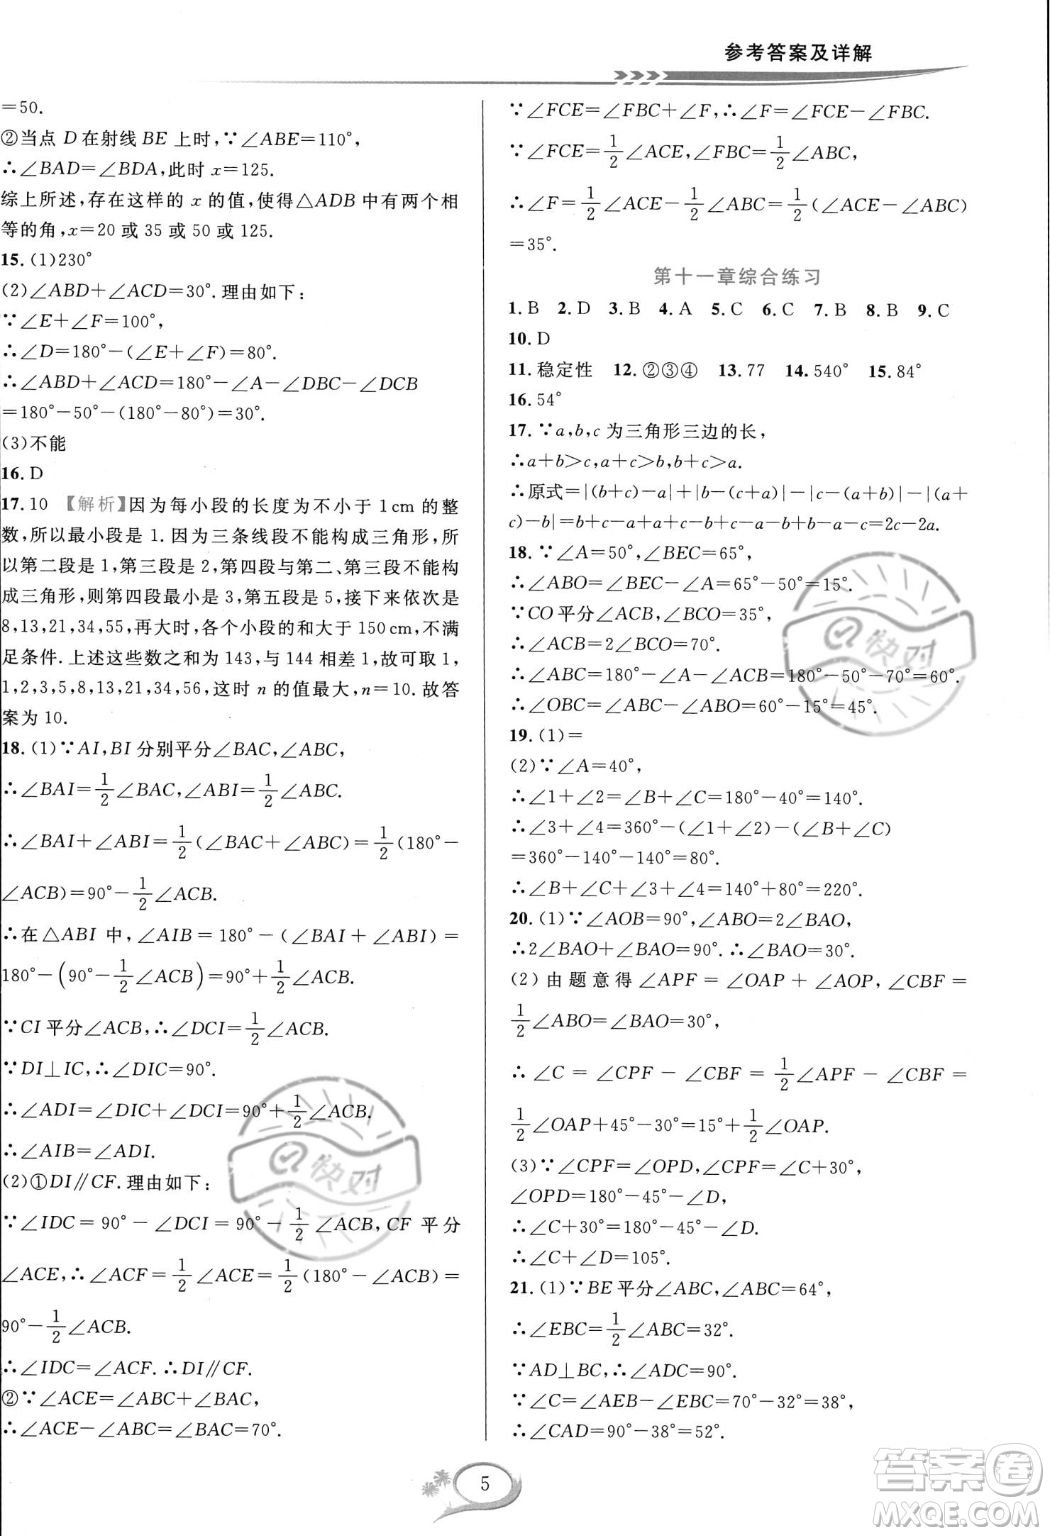 参考答案及详解
=50.
②当点 D 在射线 BE 上时,∵∠ABE=110°,
∴∠BAD=∠BDA,此时 x=125.
综上所述,存在这样的 x 的值,使得△ADB 中有两个相
等的角,x=20 或 35 或 50 或 125.
15.(1)230°
(2)∠ABD+∠ACD=30°.理由如下:
∵∠E+∠F=100°,
∴∠D=180°-(∠E+∠F)=80°.
∴∠ABD+∠ACD=180°-∠A-∠DBC-∠DCB
=180°-50°-(180°-80°)=30°.
(3)不能
16.D
17.10 【解析】因为每小段的长度为不小于 1 cm 的整
数,所以最小段是 1.因为三条线段不能构成三角形,所
以第二段是 1,第三段是 2,第四段与第二、第三段不能构
成三角形,则第四段最小是 3,第五段是 5,接下来依次是
8,13,21,34,55,再大时,各个小段的和大于 150 cm,不满
足条件.上述这些数之和为 143,与 144 相差 1,故可取 1,
1,2,3,5,8,13,21,34,56,这时 n 的值最大,n=10.故答
案为 10.
18.(1)∵AI,BI 分别平分∠BAC,∠ABC,
∴∠BAI=1/2∠BAC,∠ABI=1/2∠ABC.
∴∠BAI+∠ABI=1/2(∠BAC+∠ABC)=1/2(180°-
∠ACB)=90°-1/2∠ACB.
∴在△ABI 中,∠AIB=180°-(∠BAI+∠ABI)=
180°-(90°-1/2∠ACB)=90°+1/2∠ACB.
∵CI 平分∠ACB,∴∠DCI=1/2∠ACB.
∵DI⊥IC,∴∠DIC=90°.
∴∠ADI=∠DIC+∠DCI=90°+1/2∠ACB.
∴∠AIB=∠ADI.
(2)①DI∥CF.理由如下:
∵∠IDC=90°-∠DCI=90°-1/2∠ACB,CF 平分
∠ACE,∴∠ACF=1/2∠ACE=1/2(180°-∠ACB)=
90°-1/2∠ACB.
∴∠IDC=∠ACF.∴DI∥CF.
②∵∠ACE=∠ABC+∠BAC,
∴∠ACE-∠ABC=∠BAC=70°.
∵∠FCE=∠FBC+∠F,∴∠F=∠FCE-∠FBC.
∵∠FCE=1/2∠ACE,∠FBC=1/2∠ABC,
∴∠F=1/2∠ACE-1/2∠ABC=1/2(∠ACE-∠ABC)
=35°.
第十一章综合练习
1.B 2.D 3.B 4.A 5.C 6.C 7.B 8.B 9.C
10.D
11.稳定性 12.②③④ 13.77 14.540° 15.84°
16.54°
17.∵a,b,c 为三角形三边的长,
∴a+b>c,a+c>b,b+c>a.
∴原式=|(b+c)-a|+|b-(c+a)|-|c-(a+b)|-|(a+
c)-b|=b+c-a+a+c-b-a-b+c-a-c+b=2c-2a.
18.∵∠A=50°,∠BEC=65°,
∴∠ABO=∠BEC-∠A=65°-50°=15°.
∵CO 平分∠ACB,∠BCO=35°,
∴∠ACB=2∠BCO=70°.
∴∠ABC=180°-∠A-∠ACB=180°-50°-70°=60°.
∴∠OBC=∠ABC-∠ABO=60°-15°=45°.
19.(1)=
(2)∵∠A=40°,
∴∠1+∠2=∠B+∠C=180°-40°=140°.
∴∠3+∠4=360°-(∠1+∠2)-(∠B+∠C)
=360°-140°-140°=80°.
∴∠B+∠C+∠3+∠4=140°+80°=220°.
20.(1)∵∠AOB=90°,∠ABO=2∠BAO,
∴2∠BAO+∠BAO=90°.∴∠BAO=30°.
(2)由题意得∠APF=∠OAP+∠AOP,∠CBF=
1/2∠ABO=∠BAO=30°,
∴∠C=∠CPF-∠CBF=1/2∠APF-∠CBF=
1/2∠OAP+45°-30°=15°+1/2∠OAP.
(3)∵∠CPF=∠OPD,∠CPF=∠C+30°,
∠OPD=180°-45°-∠D,
∴∠C+30°=180°-45°-∠D.
∴∠C+∠D=105°.
21.(1)∵BE平分∠ABC,∠ABC=64°,
∴∠EBC=1/2∠ABC=32°.
∵AD⊥BC,∴∠ADC=90°.
∴∠C=∠AEB-∠EBC=70°-32°=38°,
∴∠CAD=90°-38°=52°.
5
快对
快对
答案圈
MXQE.COM